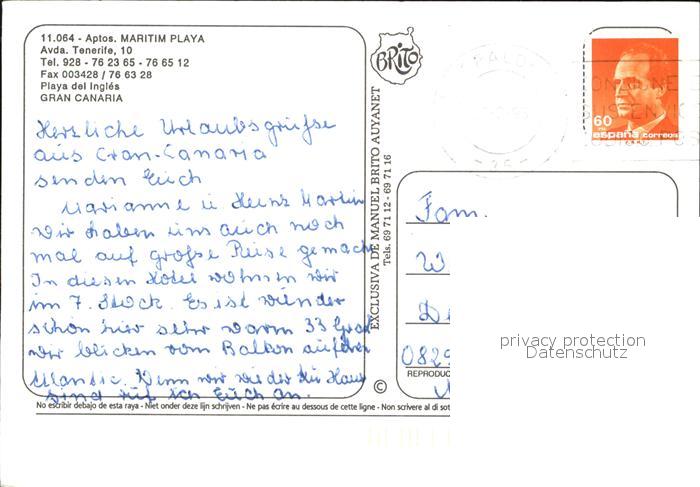 11.064 - Aptos. MARITIM PLAYA
Avda. Tenerife, 10
Tel. 928 - 76 23 65 - 76 65 12
Fax 003428 / 76 63 28
Playa del Inglés
GRAN CANARIA
Herzliche Urlaubsgrüße
aus Gran-Canaria
senden Euch
Marianne u Heinz Martin
Wir haben uns auch noch
mal auf große Reise gemacht
In diesen Hotel wohnen wir
im 7. Stock. Es ist wunder
schön hier sehr warm 33 Grad
wir blicken vom Balkon auf den
Atlantic. Wenn wir wieder zu Haus
sind ruf ich Euch an.
No escribir debajo de esta raya - Niet onder deze lijn schrijven - Ne pas écrire au dessous de cette ligne - Non scrivere al di sot
BRITO
EXCLUSIVA DE MANUEL BRITO AUYANET
Tels. 69 71 12 - 69 71 16
©
60
españa correos
Fam.
W
D
0829
REPRODUC
privacy protection
Datenschutz